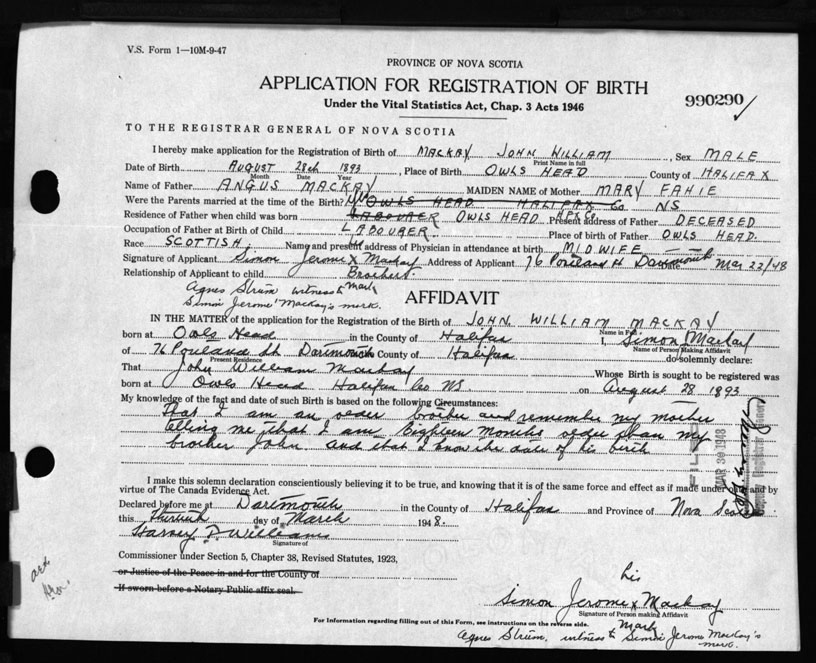 V.S. Form 1—10M-9-47
PROVINCE OF NOVA SCOTIA
APPLICATION FOR REGISTRATION OF BIRTH
Under the Vital Statistics Act, Chap. 3 Acts 1946
990290
TO THE REGISTRAR GENERAL OF NOVA SCOTIA
I hereby make application for the Registration of Birth of MACKAY JOHN WILLIAM, Sex MALE
Print Name in full
Date of Birth AUGUST 28th 1893, Place of Birth OWLS HEAD County of HALIFAX
Month Date Year
Name of Father ANGUS MACKAY MAIDEN NAME of Mother MARY FAHIE
Were the Parents married at the time of the Birth? OWLS HEAD HALIFAX Co NS
Residence of Father when child was born LABOURER OWLS HEAD Present address of Father DECEASED
Occupation of Father at Birth of Child LABOURER. Place of birth of Father OWLS HEAD.
Race SCOTTISH. Name and present address of Physician in attendance at birth MIDWIFE
Signature of Applicant Simon Jerome x Mackay Address of Applicant 76 Portland St Dartmouth Mar 22/48
Relationship of Applicant to child Brother
Agnes Strum witness to mark
Simon Jerome Mackay's mark.
AFFIDAVIT
IN THE MATTER of the application for the Registration of the Birth of JOHN WILLIAM MACKAY
Name in Full
born at Owls Head in the County of Halifax I, Simon Mackay
Name of Person Making Affidavit
of 76 Portland St Dartmouth County of Halifax do solemnly declare:
Present Residence
That John William Mackay Whose Birth is sought to be registered was
born at Owls Head Halifax Co NS on August 28 1893
My knowledge of the fact and date of such Birth is based on the following Circumstances:
That I am an older brother and remember my mother
telling me that I am Eighteen months older than my
brother John and that I know the date of his birth
FILED
MAR 30 1948
Deputy Registrar General
I make this solemn declaration conscientiously believing it to be true, and knowing that it is of the same force and effect as if made under oath and by
virtue of The Canada Evidence Act.
Declared before me at Dartmouth in the County of Halifax and Province of Nova Scotia
this thirtieth day of March 1948.
Harvey T. Williams
Signature of
Commissioner under Section 5, Chapter 38, Revised Statutes, 1923,
or Justice of the Peace in and for the County of
If sworn before a Notary Public affix seal.
his
Simon Jerome x Mackay
Signature of Person making Affidavit
mark
For Information regarding filling out of this Form, see instructions on the reverse side.
Agnes Strum, witness to Simon Jerome Mackay's
mark.